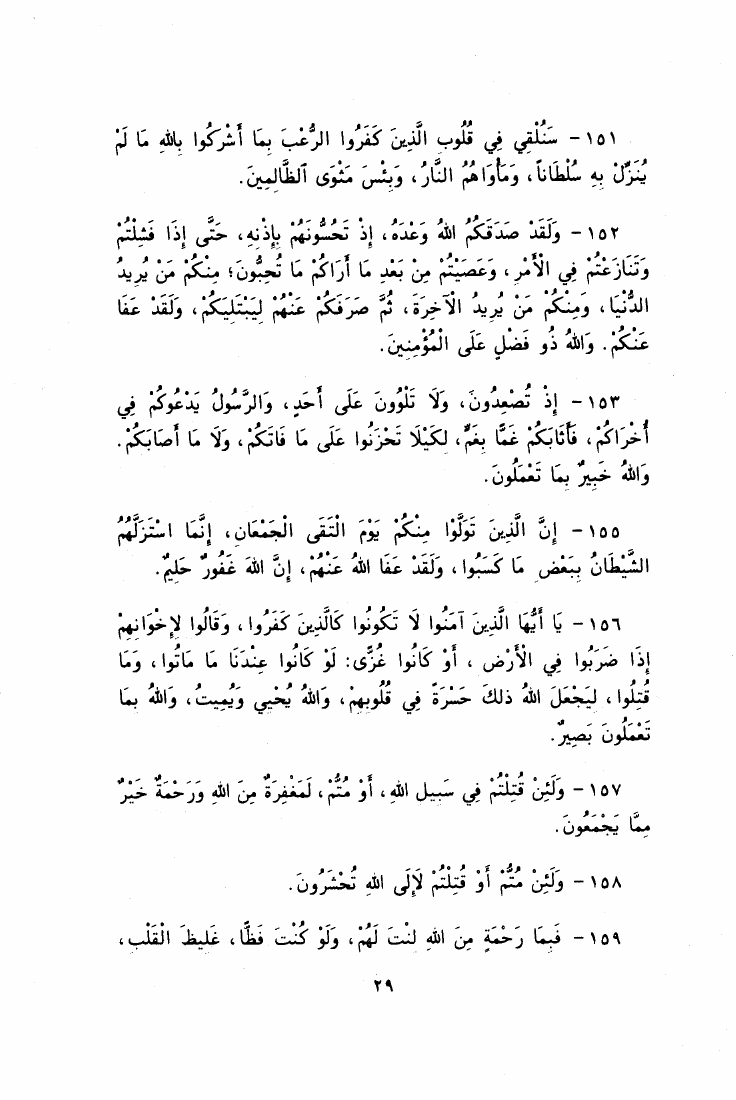 ١٥١ - سَنُلْقِي فِي قُلُوبِ الَّذِينَ كَفَرُوا الرُّعْبَ بِمَا أَشْرَكُوا بِاللهِ مَا لَمْ
يُنَزِّلْ بِهِ سُلْطَاناً، وَمَأْوَاهُمُ النَّارُ، وَبِئْسَ مَثْوَى ٱلظَّالِمِينَ.
١٥٢ - وَلَقَدْ صَدَقَكُمُ اللهُ وَعْدَهُ، إِذْ تَحُسُّونَهُمْ بِإِذْنِهِ، حَتَّى إِذَا فَشِلْتُمْ
وَتَنَازَعْتُمْ فِي الْأَمْرِ، وَعَصَيْتُمْ مِنْ بَعْدِ مَا أَرَاكُمْ مَا تُحِبُّونَ؛ مِنْكُمْ مَنْ يُرِيدُ
الدُّنْيَا، وَمِنْكُمْ مَنْ يُرِيدُ الْآخِرَةَ، ثُمَّ صَرَفَكُمْ عَنْهُمْ لِيَبْتَلِيَكُمْ، وَلَقَدْ عَفَا
عَنْكُمْ. وَاللهُ ذُو فَضْلٍ عَلَى الْمُؤْمِنِينَ.
١٥٣ - إِذْ تُصْعِدُونَ، وَلَا تَلْوُونَ عَلَى أَحَدٍ، وَالرَّسُولُ يَدْعُوكُمْ فِي
أُخْرَاكُمْ، فَأَثَابَكُمْ غَمًّا بِغَمٍّ، لِكَيْلَا تَحْزَنُوا عَلَى مَا فَاتَكُمْ، وَلَا مَا أَصَابَكُمْ.
وَاللهُ خَبِيرٌ بِمَا تَعْمَلُونَ.
١٥٥ - إِنَّ الَّذِينَ تَوَلَّوْا مِنْكُمْ يَوْمَ الْتَقَى الْجَمْعَانِ، إِنَّمَا اسْتَزَلَّهُمُ
الشَّيْطَانُ بِبَعْضِ مَا كَسَبُوا، وَلَقَدْ عَفَا اللهُ عَنْهُمْ، إِنَّ اللهَ غَفُورٌ حَلِيمٌ.
١٥٦ - يَا أَيُّهَا الَّذِينَ آمَنُوا لَا تَكُونُوا كَالَّذِينَ كَفَرُوا، وَقَالُوا لِإِخْوَانِهِمْ
إِذَا ضَرَبُوا فِي الْأَرْضِ، أَوْ كَانُوا غُزًّى: لَوْ كَانُوا عِنْدَنَا مَا مَاتُوا، وَمَا
قُتِلُوا، لِيَجْعَلَ اللهُ ذلكَ حَسْرَةً فِي قُلُوبِهِمْ، وَاللهُ يُحْيِي وَيُمِيتُ، وَاللهُ بِمَا
تَعْمَلُونَ بَصِيرٌ.
١٥٧ - وَلَئِنْ قُتِلْتُمْ فِي سَبِيلِ اللهِ، أَوْ مُتُّمْ، لَمَغْفِرَةٌ مِنَ اللهِ وَرَحْمَةٌ خَيْرٌ
مِمَّا يَجْمَعُونَ.
١٥٨ - وَلَئِنْ مُتُّمْ أَوْ قُتِلْتُمْ لَإِلَى اللهِ تُحْشَرُونَ.
١٥٩ - فَبِمَا رَحْمَةٍ مِنَ اللهِ لِنْتَ لَهُمْ، وَلَوْ كُنْتَ فَظًّا، غَلِيظَ الْقَلْبِ،
٢٩